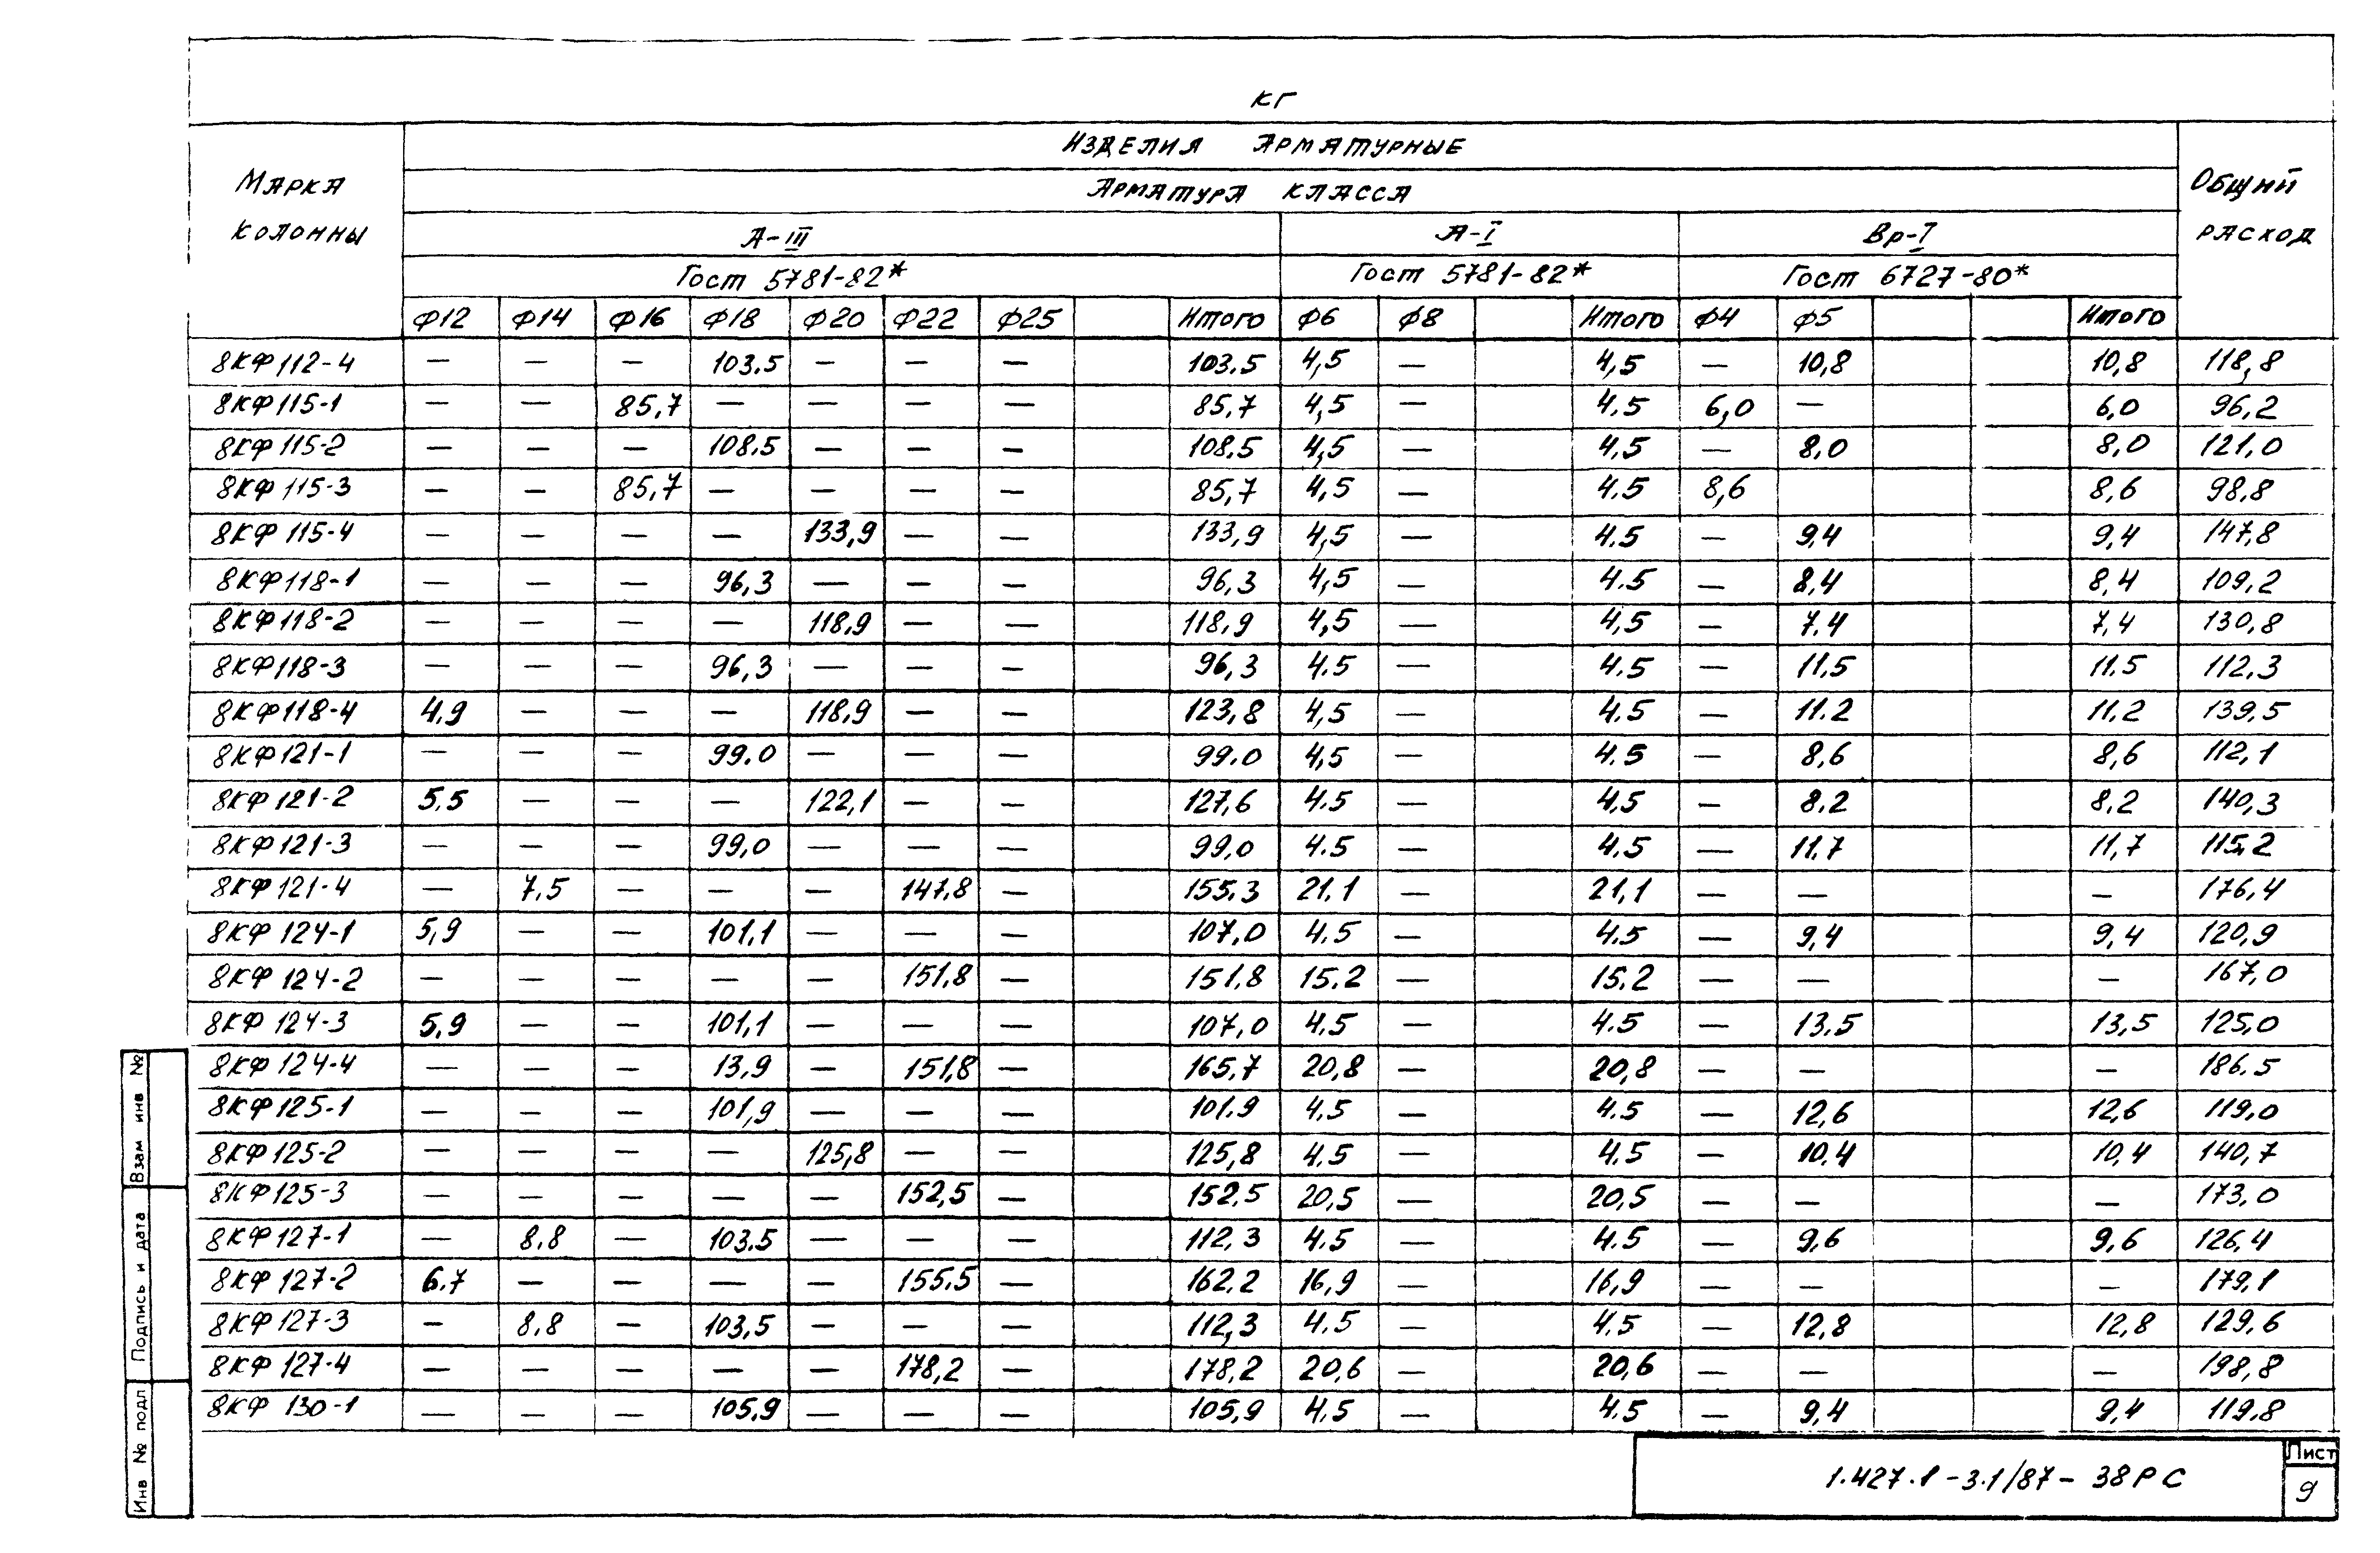 кг
Марка колонны
Изделия арматурные
Общий расход
Арматура класса
А-III А-I Вр-I
Гост 5781-82* Гост 5781-82* Гост 6727-80*
Ф12 Ф14 Ф16 Ф18 Ф20 Ф22 Ф25 Итого Ф6 Ф8 Итого Ф4 Ф5 Итого
8КФ112-4 — — — 103.5 — — — 103.5 4,5 — 4,5 — 10,8 10,8 118,8
8КФ115-1 — — 85,7 — — — — 85,7 4,5 — 4.5 6,0 — 6,0 96,2
8КФ115-2 — — — 108.5 — — — 108.5 4,5 — 4,5 — 8,0 8,0 121,0
8КФ115-3 — — 85,7 — — — — 85,7 4,5 — 4.5 8,6 8,6 98,8
8КФ115-4 — — — — 133,9 — — 133,9 4,5 — 4.5 — 9,4 9,4 147,8
8КФ118-1 — — — 96,3 — — — 96,3 4,5 — 4.5 — 8,4 8,4 109,2
8КФ118-2 — — — — 118,9 — — 118,9 4,5 — 4,5 — 7.4 7,4 130,8
8КФ118-3 — — — 96,3 — — — 96,3 4.5 — 4.5 — 11,5 11.5 112,3
8КФ118-4 4,9 — — — 118,9 — — 123,8 4,5 — 4.5 — 11.2 11,2 139,5
8КФ121-1 — — — 99.0 — — — 99.0 4,5 — 4.5 — 8,6 8,6 112,1
8КФ121-2 5.5 — — — 122,1 — — 127,6 4.5 — 4,5 — 8.2 8,2 140,3
8КФ121-3 — — — 99,0 — — — 99,0 4.5 — 4.5 — 11.7 11,7 115,2
8КФ121-4 — 7.5 — — — 147.8 — 155.3 21.1 — 21,1 — — — 176,4
8КФ124-1 5,9 — — 101,1 — — — 107,0 4.5 — 4.5 — 9,4 9,4 120,9
8КФ124-2 — — — — — 151,8 — 151,8 15.2 — 15.2 — — — 167,0
8КФ124-3 5,9 — — 101,1 — — — 107,0 4.5 — 4.5 — 13.5 13,5 125,0
8КФ124-4 — — — 13,9 — 151,8 — 165,7 20,8 — 20,8 — — — 186.5
8КФ125-1 — — — 101,9 — — — 101,9 4.5 — 4.5 — 12,6 12,6 119,0
8КФ125-2 — — — — 125,8 — — 125,8 4.5 — 4.5 — 10.4 10,4 140,7
8КФ125-3 — — — — — 152,5 — 152.5 20,5 — 20,5 — — — 173,0
8КФ127-1 — 8.8 — 103.5 — — — 112,3 4.5 — 4.5 — 9,6 9,6 126,4
8КФ127-2 6.7 — — — — 155.5 — 162,2 16,9 — 16,9 — — — 179,1
8КФ127-3 — 8,8 — 103,5 — — — 112,3 4.5 — 4.5 — 12,8 12,8 129,6
8КФ127-4 — — — — — 178,2 — 178,2 20,6 — 20,6 — — — 198,8
8КФ130-1 — — — 105,9 — — — 105,9 4.5 — 4.5 — 9,4 9,4 119,8
Взам инв №
Подпись и дата
Инв № подл
1.427.1-3.1/87- 38РС
Лист
9